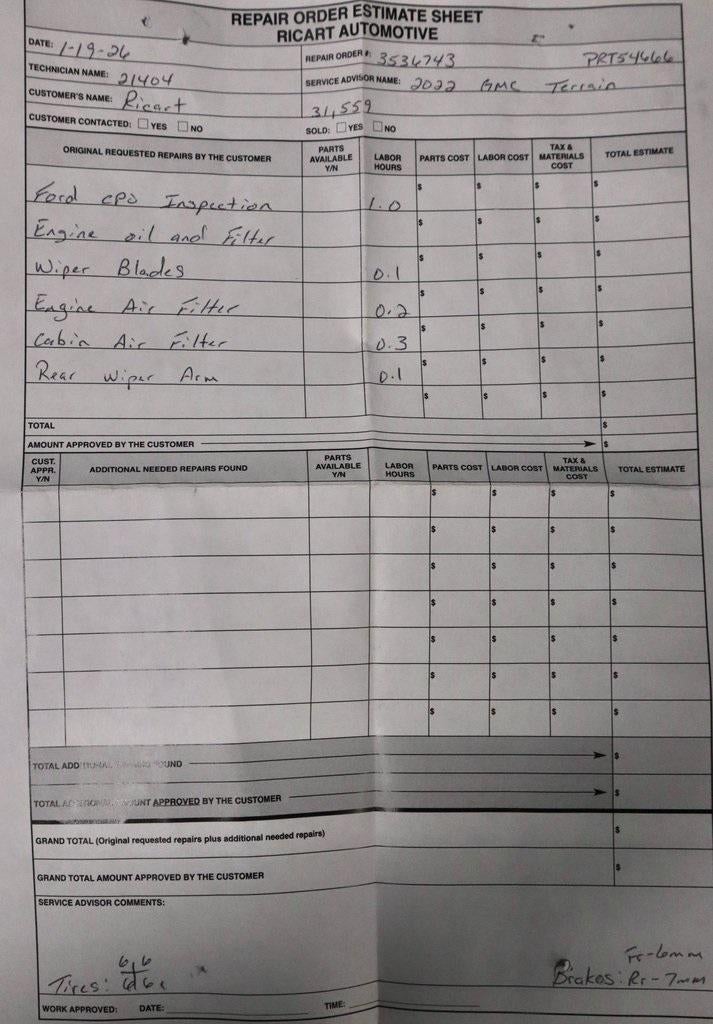 REPAIR ORDER ESTIMATE SHEET
RICART AUTOMOTIVE
DATE: 1-19-26 REPAIR ORDER #: 3536743 PRT54666
TECHNICIAN NAME: 21404 SERVICE ADVISOR NAME: 2022 GMC Terrain
CUSTOMER'S NAME: Ricart 31,559
CUSTOMER CONTACTED: YES NO SOLD: YES NO
ORIGINAL REQUESTED REPAIRS BY THE CUSTOMER PARTS AVAILABLE Y/N LABOR HOURS PARTS COST LABOR COST TAX & MATERIALS COST TOTAL ESTIMATE
Ford CPO Inspection 1.0 $ $ $ $
Engine oil and Filter $ $ $ $
Wiper Blades 0.1 $ $ $ $
Engine Air Filter 0.2 $ $ $ $
Cabin Air Filter 0.3 $ $ $ $
Rear Wiper Arm 0.1 $ $ $ $
$ $ $ $
TOTAL $
AMOUNT APPROVED BY THE CUSTOMER $
CUST. APPR. Y/N ADDITIONAL NEEDED REPAIRS FOUND PARTS AVAILABLE Y/N LABOR HOURS PARTS COST LABOR COST TAX & MATERIALS COST TOTAL ESTIMATE
$ $ $ $
$ $ $ $
$ $ $ $
$ $ $ $
$ $ $ $
$ $ $ $
$ $ $ $
TOTAL ADDITIONAL FOUND $
TOTAL ADDITIONAL AMOUNT APPROVED BY THE CUSTOMER $
GRAND TOTAL (Original requested repairs plus additional needed repairs) $
GRAND TOTAL AMOUNT APPROVED BY THE CUSTOMER $
SERVICE ADVISOR COMMENTS:
6 6 Fr-6mm
Tires: 6 6 Brakes: Rr-7mm
WORK APPROVED: DATE: TIME: